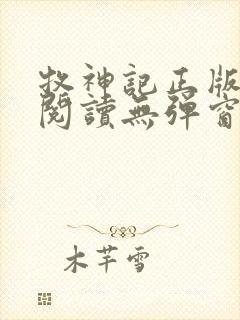 牧神記正版
閱讀無彈窗
木芊雪